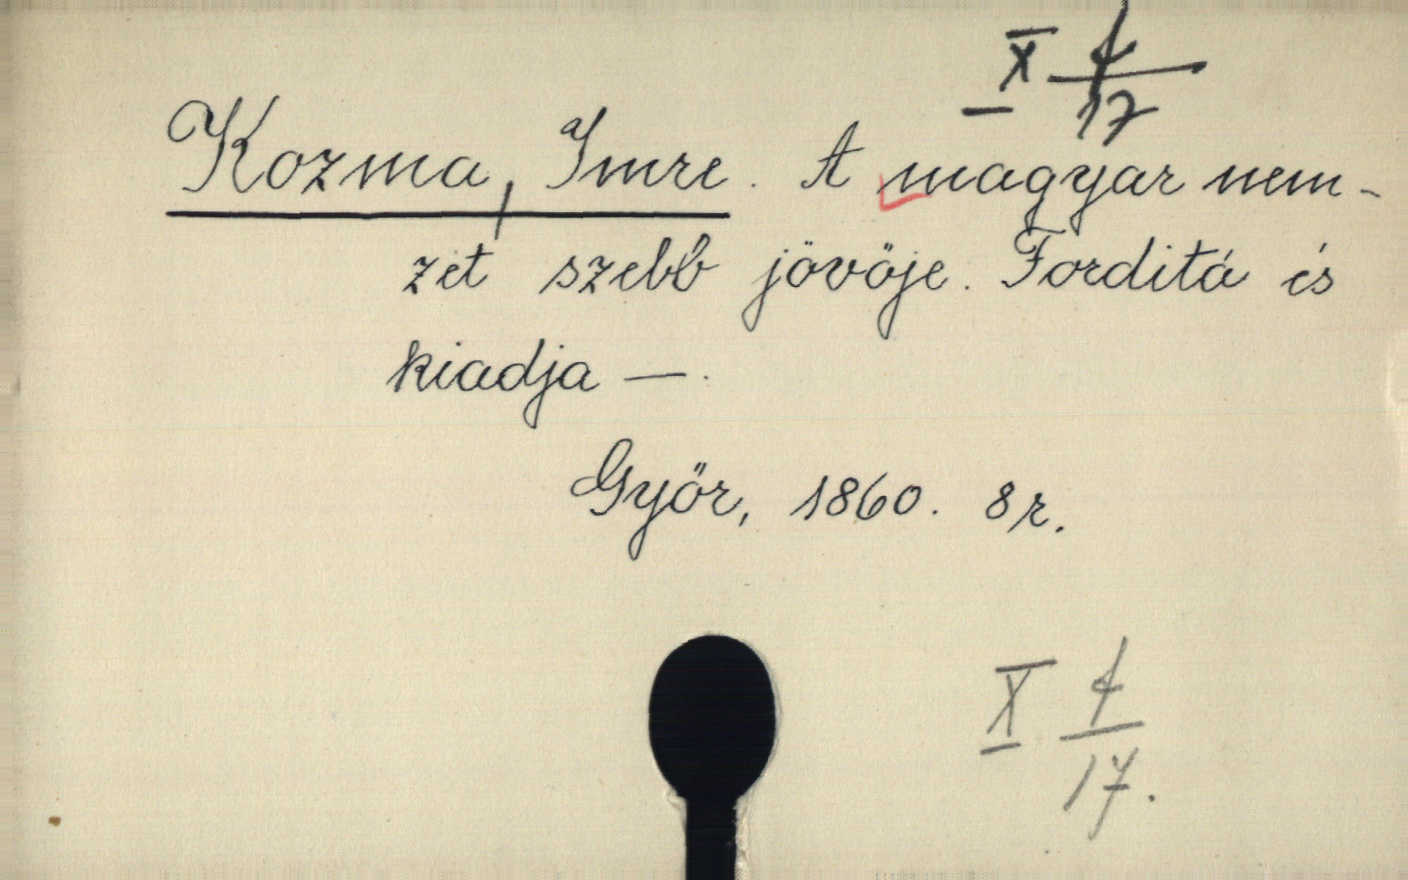 X 4/17
Kozma, Imre. A magyar nem-
zet szebb jövöje. Forditá és
kiadja —.
Győr, 1860. 8r.
X 4/17.